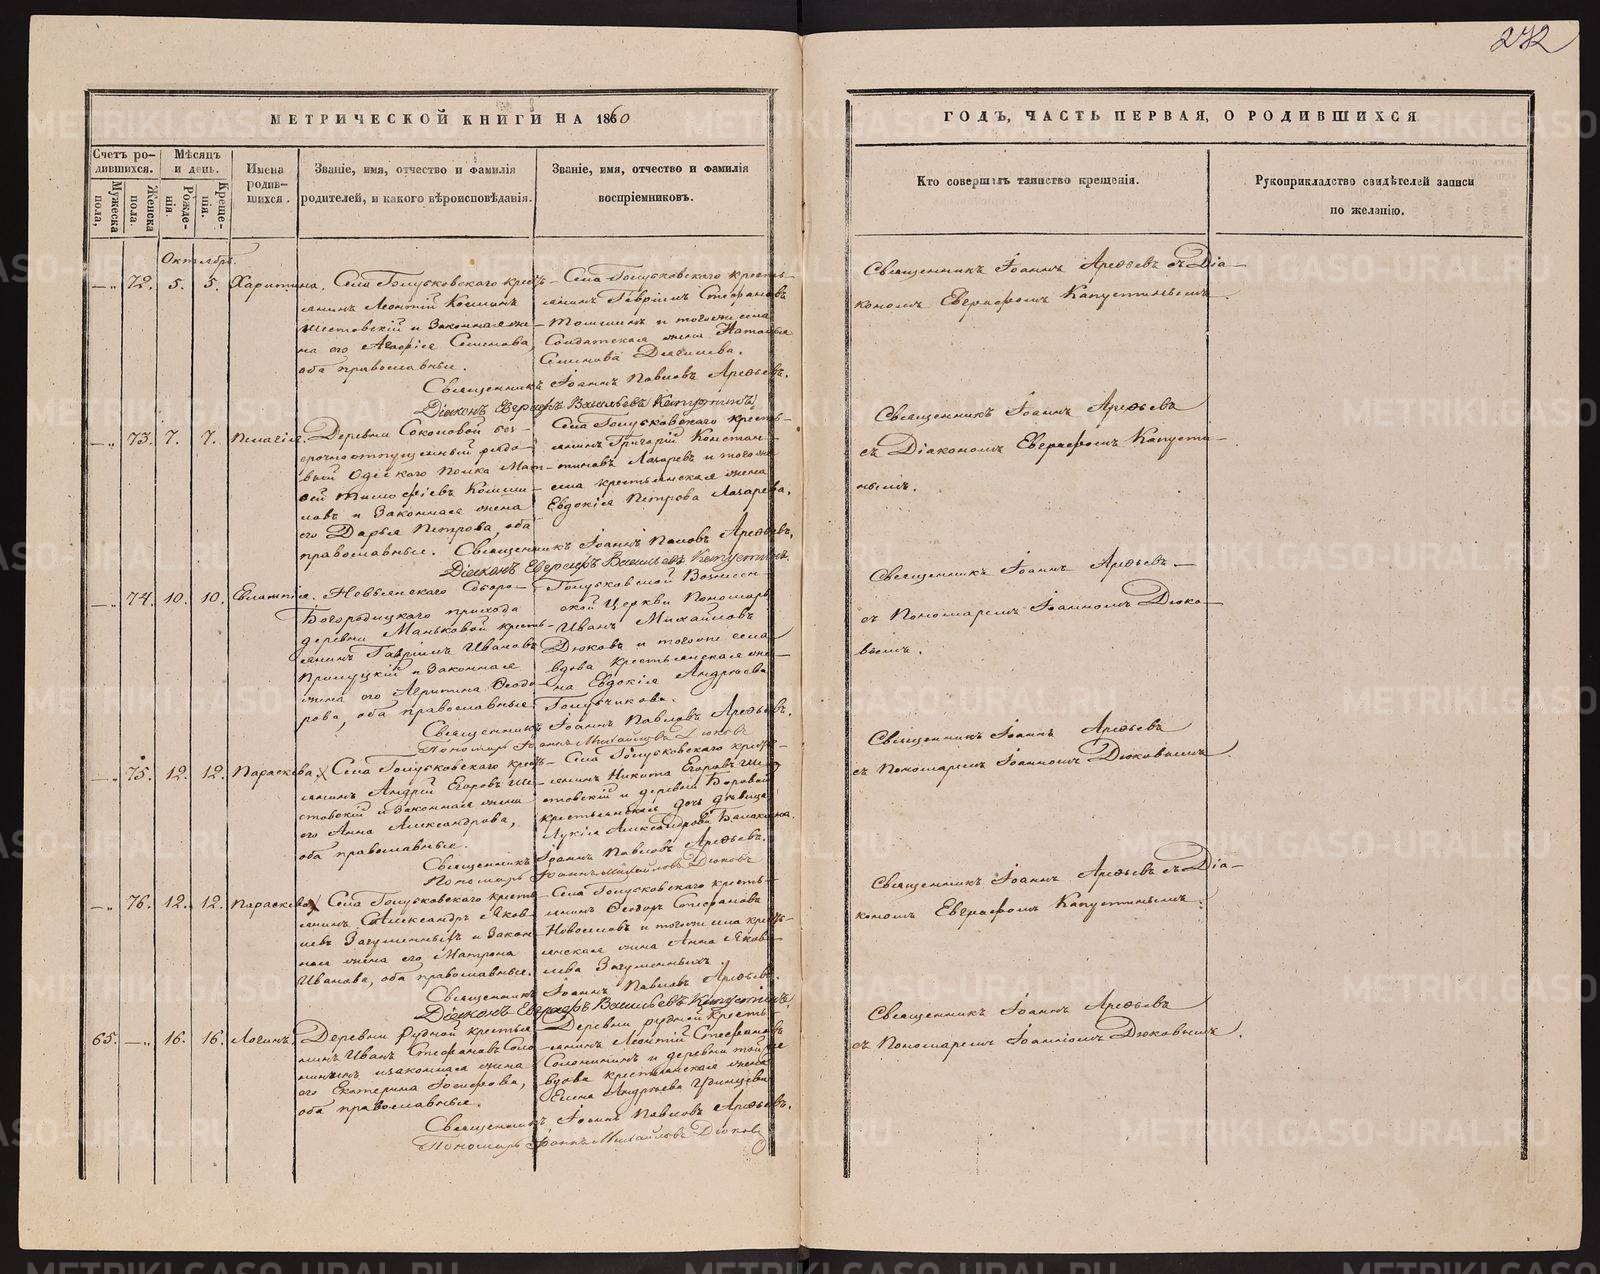 272
МЕТРИЧЕСКОЙ КНИГИ НА 1860
ГОДЪ, ЧАСТЬ ПЕРВАЯ, О РОДИВШИХСЯ
Счетъ родившихся.
Мужеска пола,
Женска пола
Мѣсяцъ и день.
Рожденія.
Крещенія.
Имена родившихся.
Званіе, имя, отчество и фамилія
родителей, и какого вѣроисповѣданія.
Званіе, имя, отчество и фамилія
воспріемниковъ.
Кто совершилъ таинство крещенія.
Рукоприкладство свидѣтелей записи
по желанію.
Октябрь.
72. 5. 5. Харитина.
Села Голубковскаго крест-
янинъ Леонтій
и Законная же-
на его Агафія Семенова,
оба православные.
Села Голубковскаго кресть-
янинъ Гавріилъ Стефановъ
и тогоже села
Солдатская жена Наталья
Семенова
Священникъ Іоаннъ Павловъ Арефьевъ.
Діаконъ Евграфъ Васильевъ Капустинъ.
Священникъ Іоаннъ Арефьевъ съ Діа-
кономъ Евграфомъ Капустинымъ.
73. 7. 7. Пелагія.
Деревни Соколовой без-
срочноотпускный рядо-
вый Одескаго Полка Мат-
вей Тимофеевъ
и Законная жена
его Дарья Петрова, оба
православные.
Села Голубковскаго кресть-
янинъ Григорій Констан-
тиновъ Лазаревъ и тогоже
села крестьянская жена
Евдокія Петрова Лазарева.
Священникъ Іоаннъ Павловъ Арефьевъ,
Діаконъ Евграфъ Васильевъ Капустинъ.
Священникъ Іоаннъ Арефьевъ
съ Діакономъ Евграфомъ Капусти-
нымъ.
74. 10. 10. Евлампія.
Невьянскаго Соборо-
Богородицкаго прихода
деревни Маньковой кресть-
янинъ Гавріилъ Ивановъ
и Законная
жена его Агрипина Федо-
рова, оба православные.
Голубковской Вознесен-
ской Церкви Пономарь
Иванъ Михайловъ
Дюковъ и тогоже села
вдова крестьянская же-
на Евдокія Андреева
Голубчикова.
Священникъ Іоаннъ Павловъ Арефьевъ.
Пономарь Іоаннъ Михайловъ Дюковъ
Священникъ Іоаннъ Арефьевъ
съ Пономаремъ Іоанномъ Дюко-
вымъ.
75. 12. 12. Параскева.
Села Голубковскаго крест-
янинъ Андрей Егоровъ Ше-
стовскій и Законная жена
его Анна Александрова,
оба православные.
Села Голубковскаго кресть-
янинъ Никита Егоровъ Ше-
стовскій и деревни Боровой
крестьянская дочь дѣвица
Лукія Александрова
Священникъ Іоаннъ Павловъ Арефьевъ.
Пономарь Іоаннъ Михайловъ Дюковъ
Священникъ Іоаннъ Арефьевъ
съ Пономаремъ Іоанномъ Дюковымъ.
76. 12. 12. Параскева
Села Голубковскаго кресть-
янинъ Александръ Яков-
левъ Загуменныхъ и Закон-
ная жена его Матрона
Иванова, оба православные.
Села Голубковскаго кресть-
янинъ Феодоръ Стефановъ
Новоселовъ и тогоже села кресть-
янская жена Анна Яков-
лева Загуменныхъ
Священникъ Іоаннъ Павловъ Арефьевъ.
Діаконъ Евграфъ Васильевъ Капустинъ.
Священникъ Іоаннъ Арефьевъ съ Діа-
кономъ Евграфомъ Капустинымъ.
65. 16. 16. Логинъ.
Деревни Рудной крестья-
нинъ Иванъ Стефановъ Соло-
нининъ и законная жена
его Екатерина Іосифова,
оба православные.
Деревни Рудной кресть-
янинъ Леонтій Стефановъ
Солонининъ и деревни той же
вдова крестьянская жена
Елена Андреева
Священникъ Іоаннъ Павловъ Арефьевъ.
Пономарь Іоаннъ Михайловъ Дюковъ
Священникъ Іоаннъ Арефьевъ
съ Пономаремъ Іоанномъ Дюковымъ.
METRIKI.GASO-URAL.RU